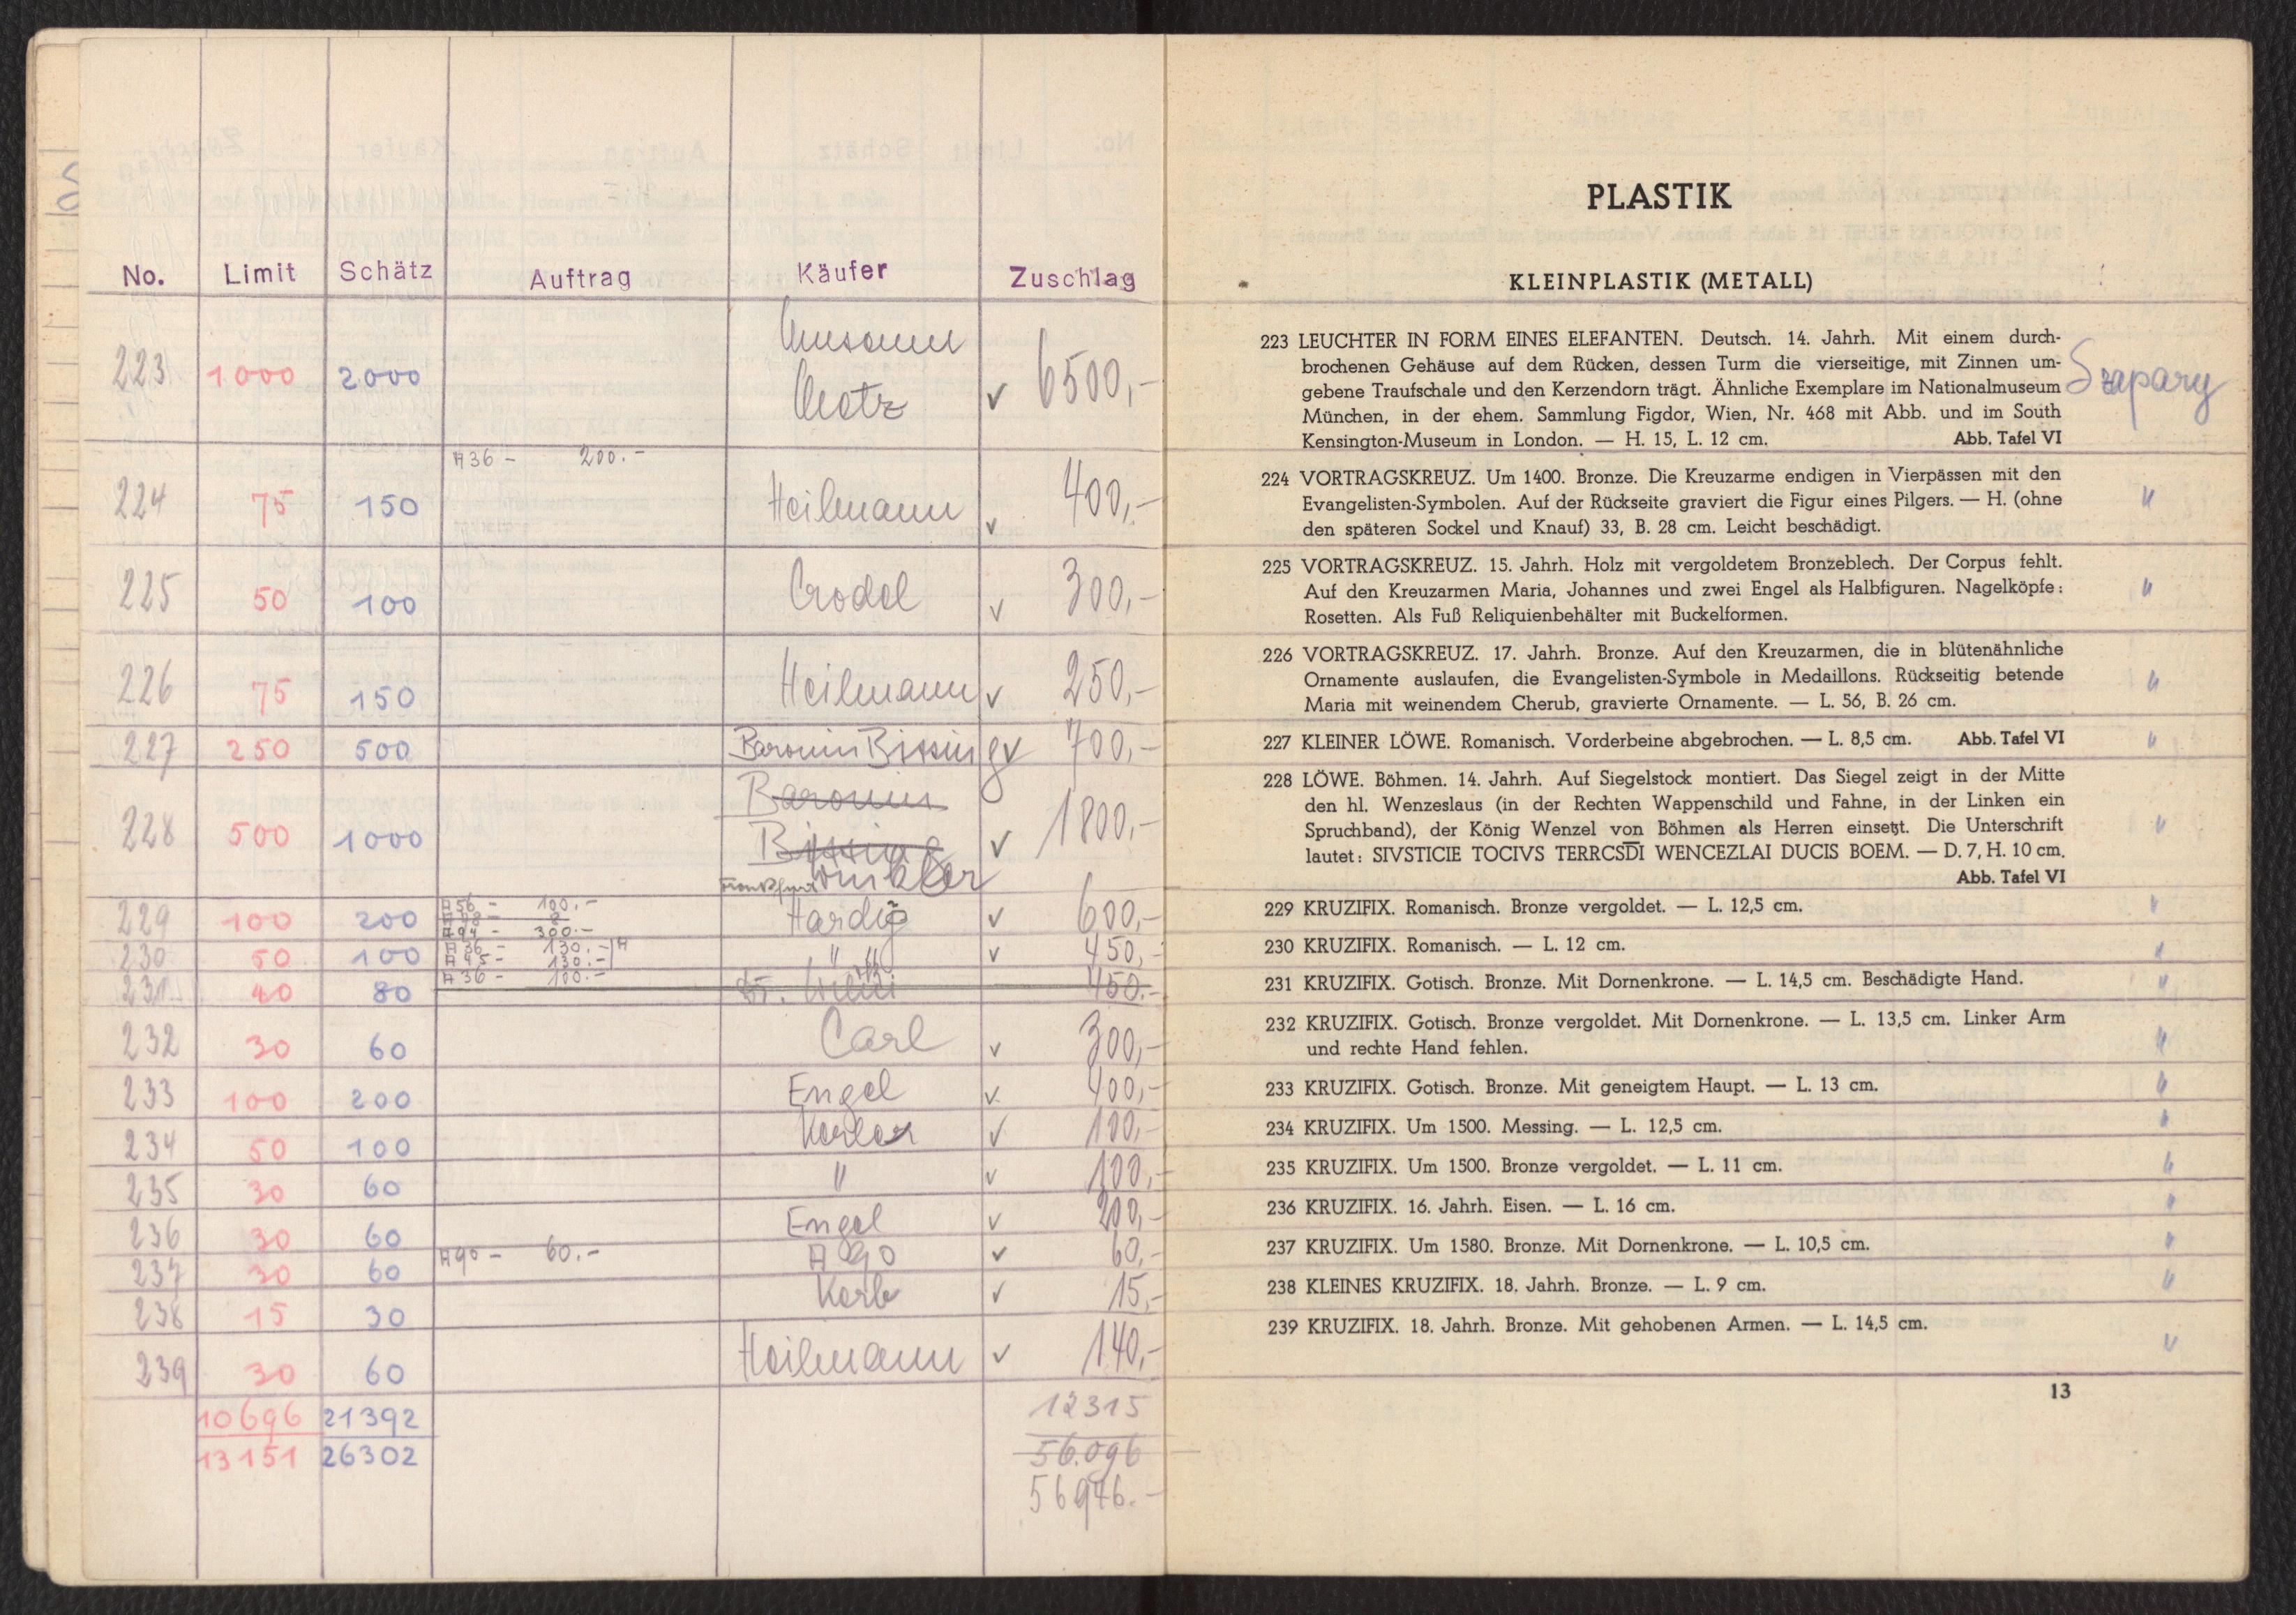 No. Limit Schätz Auftrag Käufer Zuschlag
223 1000 2000 ✓ 6500,-
A36 - 200.-
224 75 150 Heilmann ✓ 400,-
225 50 100 Crodel ✓ 300,-
226 75 150 Heilmann ✓ 250,-
227 250 500 Baronin Bissing ✓ 700,-
228 500 1000 Baronin Bissing ✓ 1800,-
Winkler
A56 - 100.-
229 100 200 ✓ 600,-
A94 - 300.-
A36 - 130.-
230 50 100 A45 - 130.- " " ✓ 450,-
231 40 80 A36 - 100.- 450.-
232 30 60 Carl ✓ 300,-
233 100 200 Engel ✓ 400,-
234 50 100 ✓ 100,-
235 30 60 " ✓ 100,-
236 30 60 Engel ✓ 200,-
237 30 60 A90 - 60.- A 90 ✓ 60,-
238 15 30 Korb ✓ 15,-
239 30 60 Heilmann ✓ 140,-
10696 21392 12315
13151 26302 56.096
56946.-
PLASTIK
KLEINPLASTIK (METALL)
223 LEUCHTER IN FORM EINES ELEFANTEN. Deutsch. 14. Jahrh. Mit einem durch-
brochenen Gehäuse auf dem Rücken, dessen Turm die vierseitige, mit Zinnen um-
gebene Traufschale und den Kerzendorn trägt. Ähnliche Exemplare im Nationalmuseum Szapary
München, in der ehem. Sammlung Figdor, Wien, Nr. 468 mit Abb. und im South
Kensington-Museum in London. — H. 15, L. 12 cm. Abb. Tafel VI
224 VORTRAGSKREUZ. Um 1400. Bronze. Die Kreuzarme endigen in Vierpässen mit den
Evangelisten-Symbolen. Auf der Rückseite graviert die Figur eines Pilgers. — H. (ohne "
den späteren Sockel und Knauf) 33, B. 28 cm. Leicht beschädigt.
225 VORTRAGSKREUZ. 15. Jahrh. Holz mit vergoldetem Bronzeblech. Der Corpus fehlt.
Auf den Kreuzarmen Maria, Johannes und zwei Engel als Halbfiguren. Nagelköpfe: "
Rosetten. Als Fuß Reliquienbehälter mit Buckelformen.
226 VORTRAGSKREUZ. 17. Jahrh. Bronze. Auf den Kreuzarmen, die in blütenähnliche
Ornamente auslaufen, die Evangelisten-Symbole in Medaillons. Rückseitig betende "
Maria mit weinendem Cherub, gravierte Ornamente. — L. 56, B. 26 cm.
227 KLEINER LÖWE. Romanisch. Vorderbeine abgebrochen. — L. 8,5 cm. Abb. Tafel VI "
228 LÖWE. Böhmen. 14. Jahrh. Auf Siegelstock montiert. Das Siegel zeigt in der Mitte
den hl. Wenzeslaus (in der Rechten Wappenschild und Fahne, in der Linken ein
Spruchband), der König Wenzel von Böhmen als Herren einsetzt. Die Unterschrift "
lautet: SIVSTICIE TOCIVS TERRCSD̅I WENCEZLAI DUCIS BOEM. — D. 7, H. 10 cm.
Abb. Tafel VI
229 KRUZIFIX. Romanisch. Bronze vergoldet. — L. 12,5 cm. "
230 KRUZIFIX. Romanisch. — L. 12 cm. "
231 KRUZIFIX. Gotisch. Bronze. Mit Dornenkrone. — L. 14,5 cm. Beschädigte Hand. "
232 KRUZIFIX. Gotisch. Bronze vergoldet. Mit Dornenkrone. — L. 13,5 cm. Linker Arm
und rechte Hand fehlen. "
233 KRUZIFIX. Gotisch. Bronze. Mit geneigtem Haupt. — L. 13 cm. "
234 KRUZIFIX. Um 1500. Messing. — L. 12,5 cm. "
235 KRUZIFIX. Um 1500. Bronze vergoldet. — L. 11 cm. "
236 KRUZIFIX. 16. Jahrh. Eisen. — L. 16 cm. "
237 KRUZIFIX. Um 1580. Bronze. Mit Dornenkrone. — L. 10,5 cm. "
238 KLEINES KRUZIFIX. 18. Jahrh. Bronze. — L. 9 cm. "
239 KRUZIFIX. 18. Jahrh. Bronze. Mit gehobenen Armen. — L. 14,5 cm. "
13